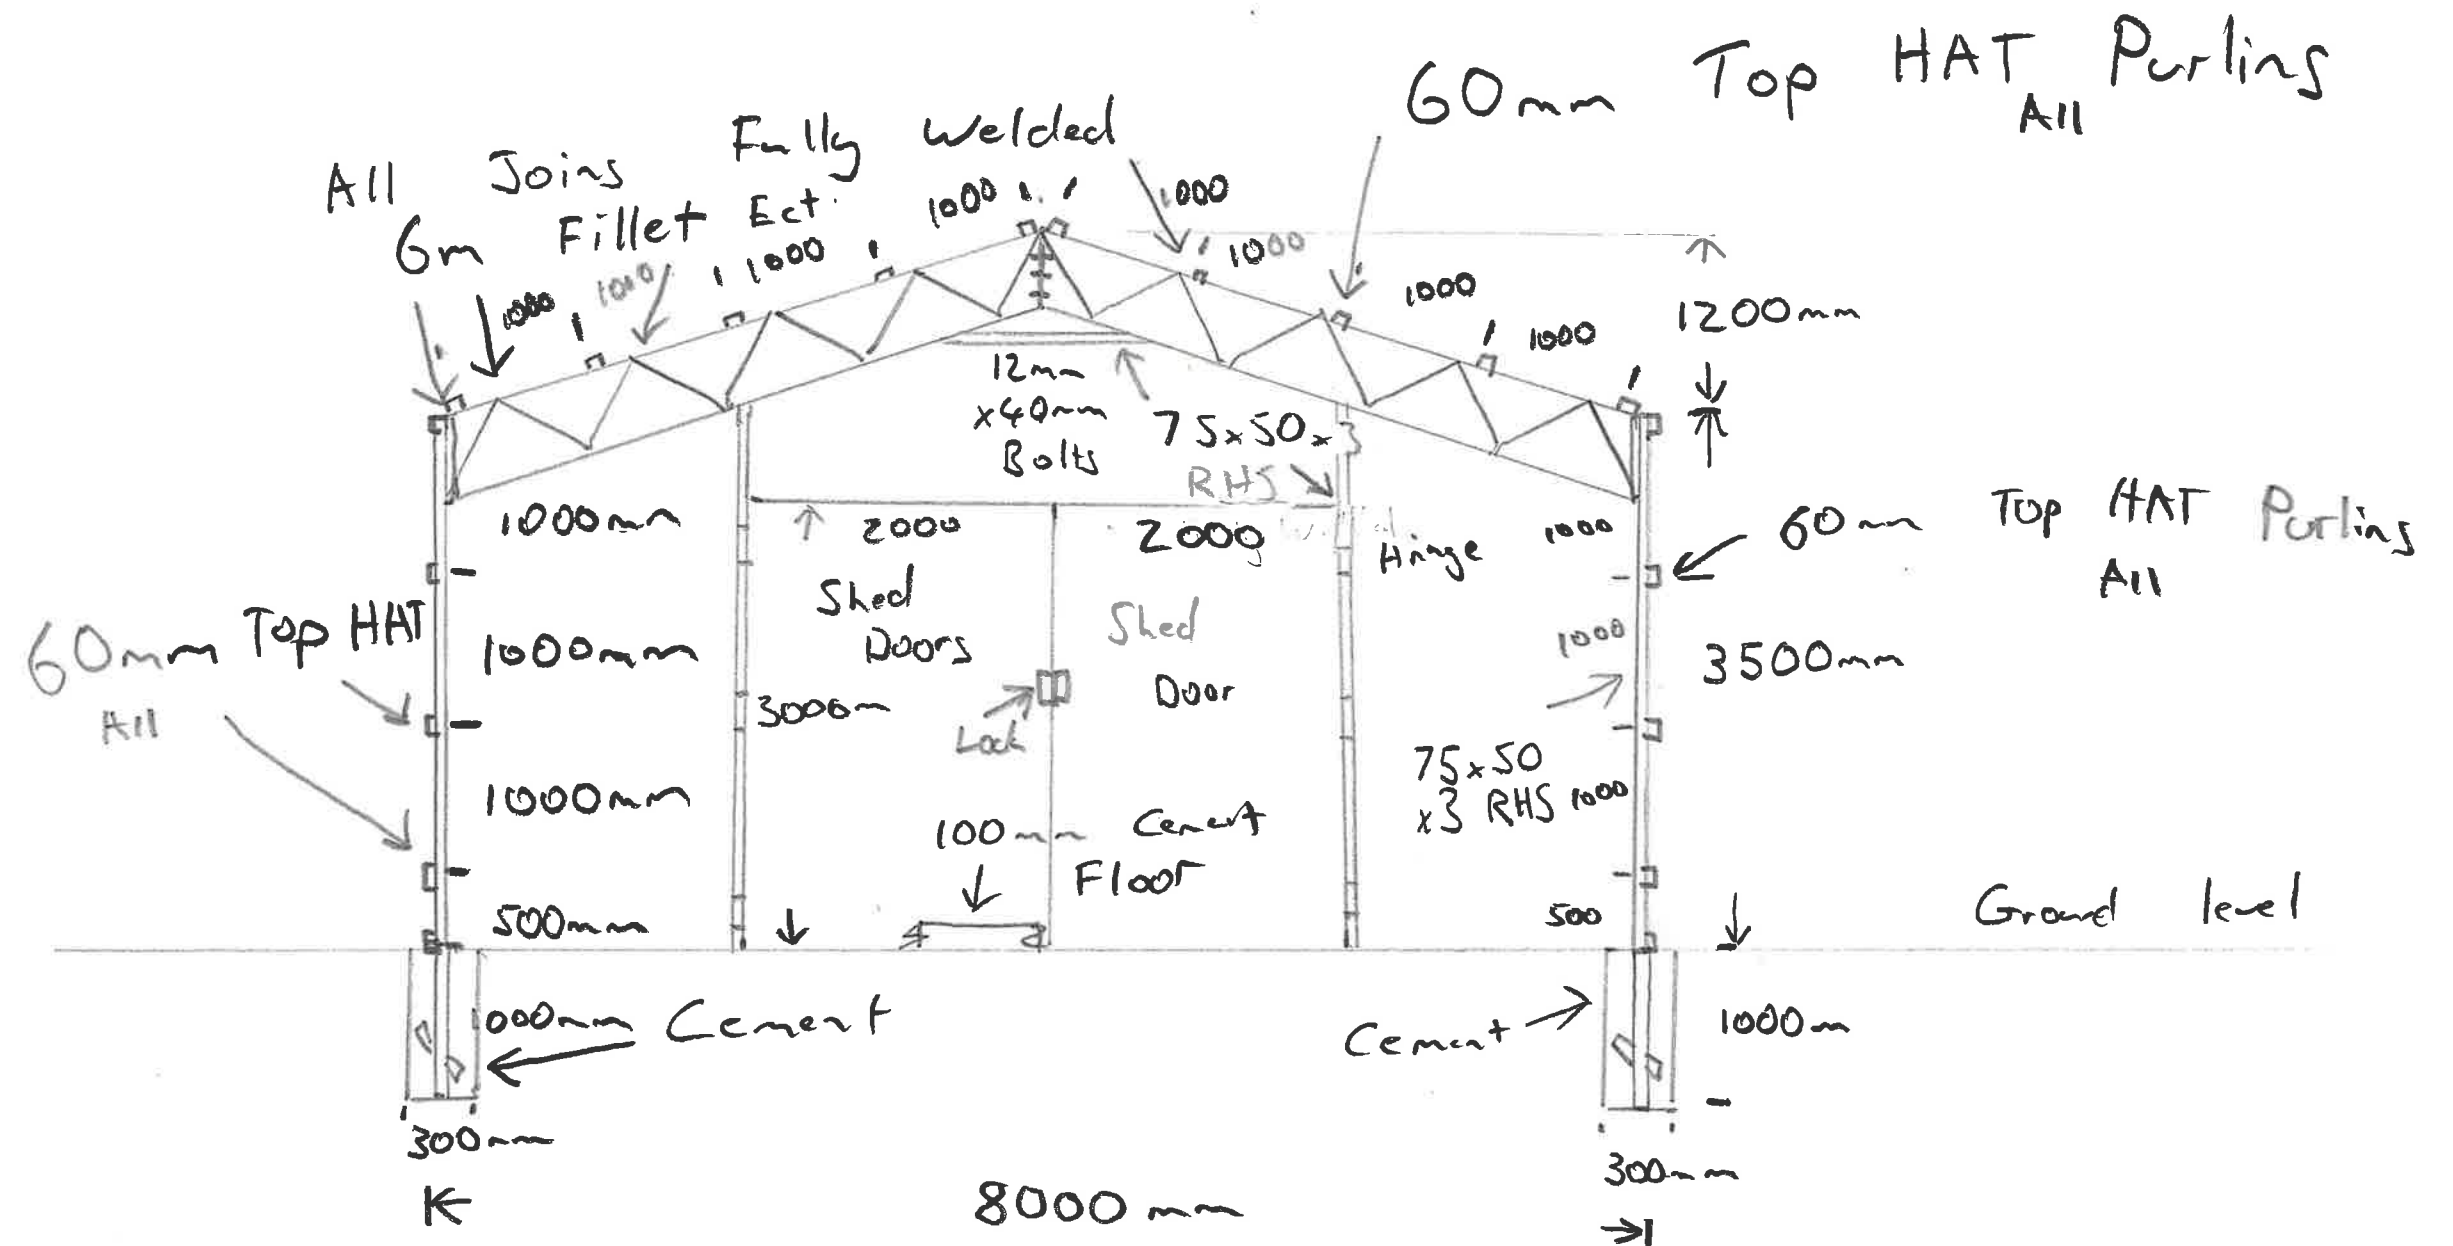 60mm Top HAT Purlins
All
All Joins Fully Welded
6m Fillet Ect.
1000
1000
1000
1000
1000
1000
1000
1000
1200mm
12mm
x40mm
Bolts
75x50x3
RHS
1000mm
2000
2000
Hinge
1000
60mm Top HAT Purlins
All
Shed
Doors
Shed
Door
60mm Top HAT
All
1000mm
1000
3500mm
3000m
Lock
75x50
x3 RHS
1000
1000mm
100mm Cement
Floor
500mm
500
Ground level
000mm Cement
Cement
1000m
300mm
300mm
8000mm